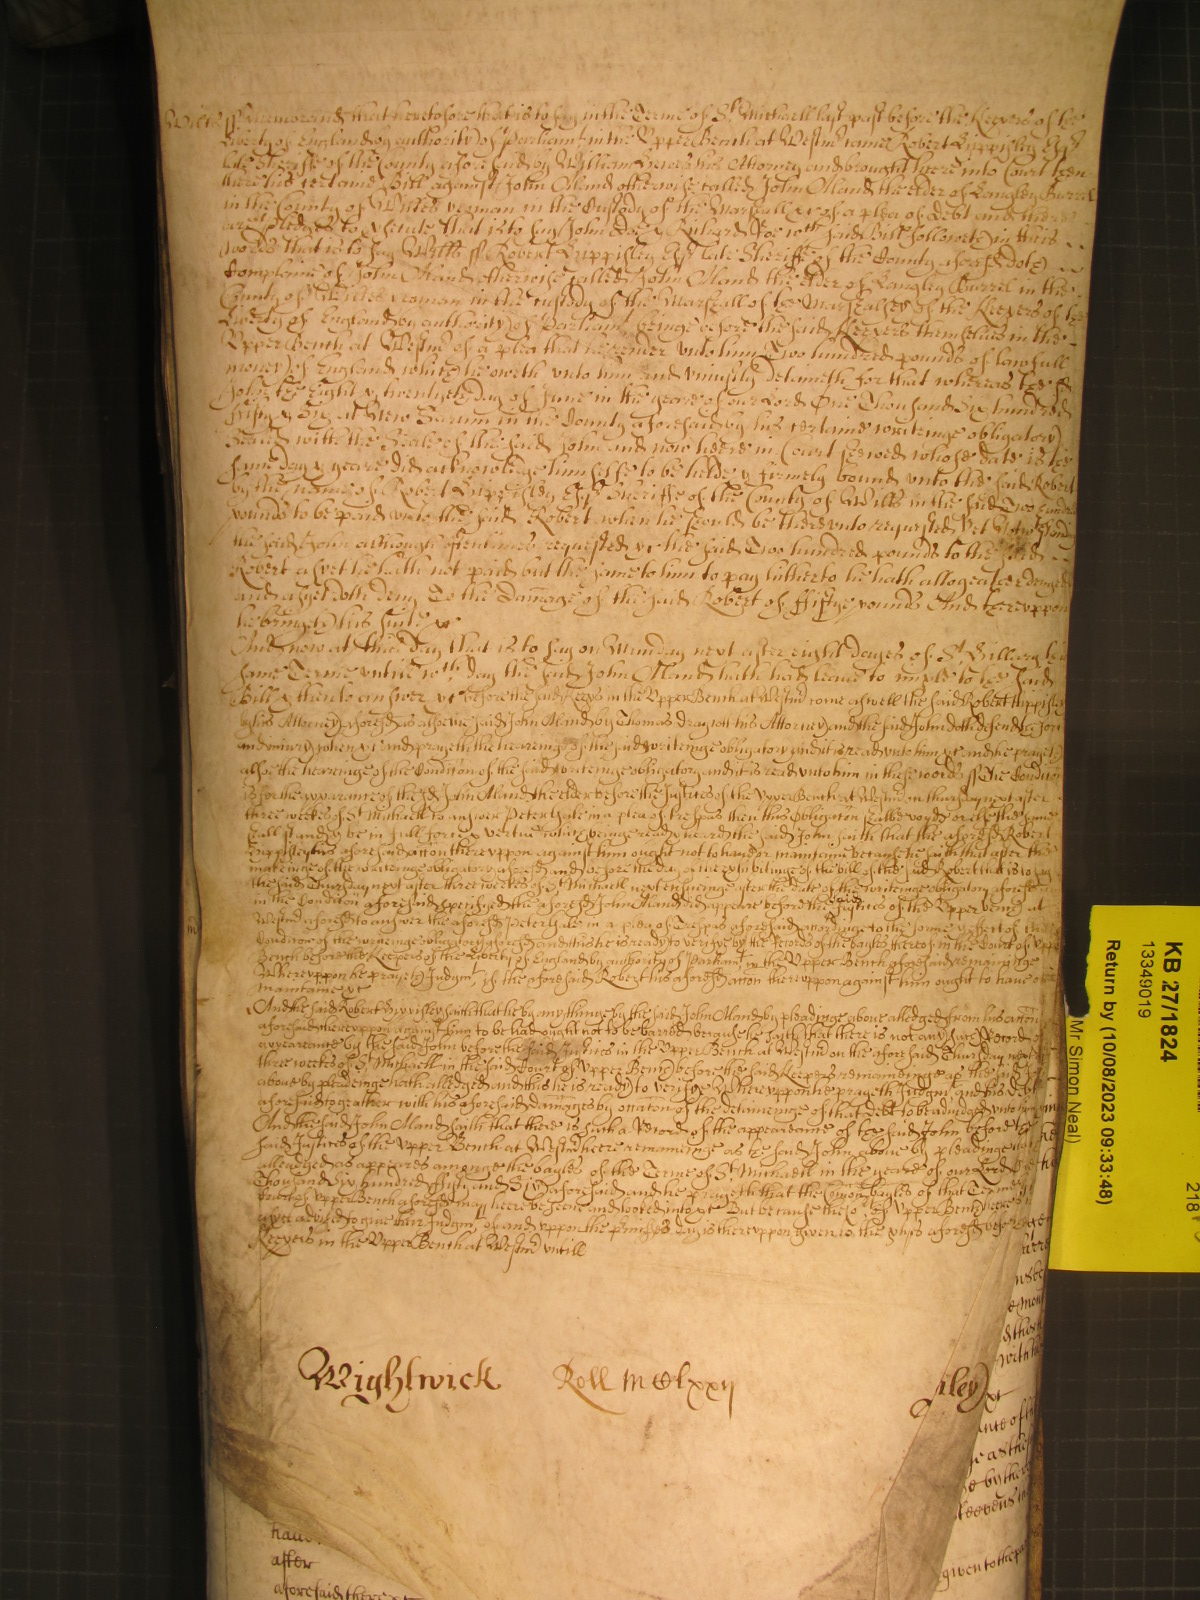 Wiltes ss Memorand that heretofore that is to say in the Terme of St Michaell last past before the Keepers of the
liberty of England by authority of Parliamt in the Upper Bench at Westmr came Robert Hippisley Esqr
late Sheriffe of the County aforesaid by William his Attorney and brought here into Court then
there his certaine Bill against John Oland otherwise called John Oland the elder of Langley Burrel
in the County of Wiltes yeoman in the Custody of the Marshall &c of a plea of debt and there
are pledges to prosecute that is to say John Doe & Richard Roe wch said Bill followeth in theis
words that is to say Wiltes ss Robert Hippisley Esqr late Sheriffe of the County aforesd doth
Complaine of John Oland otherwise called John Oland the elder of Langley Burrel in the
County of Wiltes yeoman in the custody of the Marshall of the Marshalsey of the Keepers of the
liberty of England by authority of Parliamt beinge before the said Keepers themselves in the
Upper Bench at Westmr of a plea that he render unto him Two hundred pounds of lawfull
money of England which he oweth unto him and uniustly detaineth for that whereas the sd
John the Eight & twentyeth day of June in the yeare of our Lord One Thousand Six hundred
fifty & Six at New Sarum in the County aforesaid by his certaine writeinge obligatory
Sealed with the Seale of the said John and now here in Court shewed whose date is the
same day & yeare did acknowledge himselfe to be held & firmely bound unto the said Robert
by the name of Robert Hippisley Esqr Sheriffe of the County of Wilts in the said Two hundred
pounds to be paid unto the said Robert when he should be thereunto requested Yet notwthstanding
the said John although oftentimes requested &c the said Two hundred pounds to the said
Robert as yet he hath not paid but the same to him to pay hitherto he hath altogeather denyed
and as yet doth deny To the damage of the said Robert of fiftye pounds And thereuppon
he bringeth his suite &c
And now at this day that is to say on Munday next after eight dayes of St Hillary this
same Terme untill wch day the said John Oland hath had leave to imple to the said
Bill & then to answer &c before the said Keeprs in the Upper Bench at Westmr come aswell the said Robert Hippisley
by his Attorney aforesd as alsoe the said John Oland by Thomas draycott his Attorney and the said John doth defend the force
and iniury when &c and prayeth the heareinge of the said writeinge obligatory and it is read unto him &c and he prayeth
alsoe the heareinge of the Condition of the said writeinge obligatory and it is read unto him in these words ss The Condition
is for the appearance of the sd John Oland the elder before the Justices of the Upper Bench at Westmr on thursday next after
three weekes of St Michaell to answer Peter Gale in a plea of trespas then this Obligation shalbe voyde or else the same
shall stand & be in full force & vertue which being read & heard the said John saith that the aforesd Robert
Hippisley his aforesaid action thereuppon against him ought not to have or maintaine because he saith that after the
makeinge of the writeinge obligatory aforesd and before the day of the exhibitinge of the bill of the said Robert that is to say
the said Thursday next after three weekes of St Michaell next ensueinge after the date of the writeinge obligatory aforesd
in the Condition aforesaid specifyed the aforesd John Oland did appeare before the said Justices of the Upper Bench at
Westmr aforesd to answer the aforesd Peter Gale in a plea of Trespas aforesaid accordinge to the forme & effect of the
Condicon of the writeinge obligatory aforesd and this he is ready to verifye by the Record of the bayles thereof in the Court of Upper
Bench before the Keepers of the liberty of England by authority of Parliamt in the Upper Bench aforesaid remaininge
Whereuppon he prayeth Judgmt if the aforesaid Robert his aforesd action thereuppon against him ought to have or
maintaine &c
And the said Robert Hippisley saith that he by anythinge by the said John Oland by pleadinge above alledged from his action
aforesaid thereuppon against him to be had ought not to be barred because he saith that there is not any such Record of
appearance by the said John before the said Justices in the Upper Bench at Westmr on the aforesaid Thursday next after
three weekes of St Michaell in the said Court of Upper Bench before the said Keepers remaininge as the said John
above by pleadinge hath alledged and this he is ready to verifye Whereuppon he prayeth Judgmt and his Debt
aforesaid togeather with his aforesaid damages by occation of the detaineinge of that debt to be adiudged unto him &c
And the said John Oland saith that there is such a Record of the appearance of the said John before the
said Justices of the Upper Bench at Westmr here remaininge as the said John above by pleadinge hath
alleadged as appeares amonge the bayles of the Terme of St Michaell in the yeare of our Lord One
Thousand six hundred fifty and Six aforesaid and he prayeth that the Common bayles of that Terme in the
Court of Upper Bench aforesd may here be seene and looked into &c But because the Court of Upper Bench here is not
as yet advised to give their Judgmt of and uppon the premisses day is thereuppon given to the ptyes aforesd before the
Keepers in the Upper Bench at Westmr untill
Wightwick Roll
iley &c
have
after
aforesaid there
given to the
KB 27/1824
13349019
Return by (10/08/2023 09:33:48)
Mr Simon Neal)